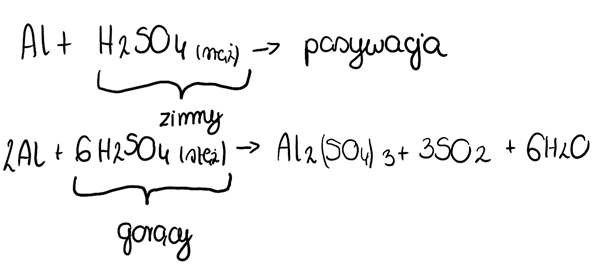 Al + H2SO4 (stęż) → pasywacja
zimny
2Al + 6H2SO4 (stęż) → Al2(SO4)3 + 3SO2 + 6H2O
gorący